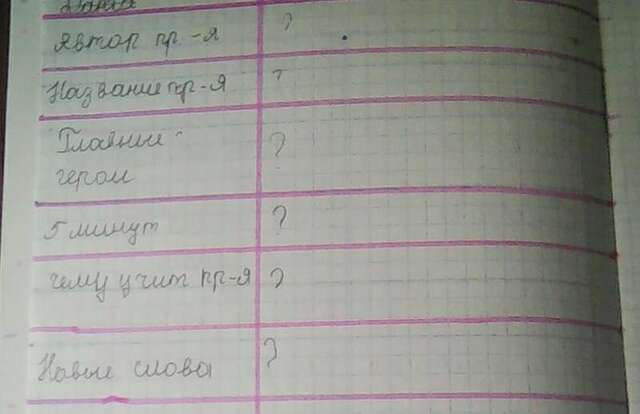 Автор пр-я ?
Название пр-я ?
Главные
герои ?
5 минут ?
чему учит пр-я ?
Новые слова ?